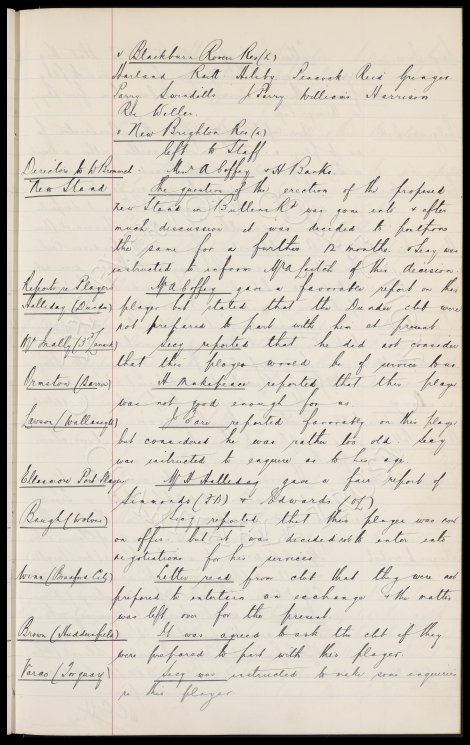 v Blackburn Rovers Res (h)
Harland Raitt Helsby Peacock Reid Grenyer
Parry Swindells J Parry Williams Harrison
Res Weller.
v New Brighton Res (a)
left to Staff
Directors to W Bromwich Messrs A Coffey & H Banks.
New Stand The question of the erection of the proposed
new Stand in Bullens Rd was gone into & after
much discussion it was decided to postpone
the same for a further 12 months & Secy was
instructed to inform Mr A Leitch of this decision.
Report re Players Mr A Coffey gave a favorable report on this
Halliday (Dundee) player but stated that the Dundee club were
not prepared to part with him at present
McInally (3rd Lanark) Secy reported that he did not consider
that this player would be of service to us
Ormston (Barrow) H Makepeace reported that this player
was not good enough for us
Lawson (Wallasey) J reported favorably on this player
but considered he was rather too old. Secy
was instructed to enquire as to his age.
Ellesmere Port Players Mr H Halliday gave a fair report of
Simmonds & Edwards (OL)
Baugh (Wolves) Secy reported that this player was now
on offer but it was decided not to enter into
negotiations for his services
Winn (Bradford City) Letter read from club that they were not
prepared to entertain an exchange & the matter
was left over for the present.
Brown (Huddersfield) It was agreed to ask the club if they
were prepared to part with this player.
(Torquay) Secy was instructed to make some enquiries
re this player